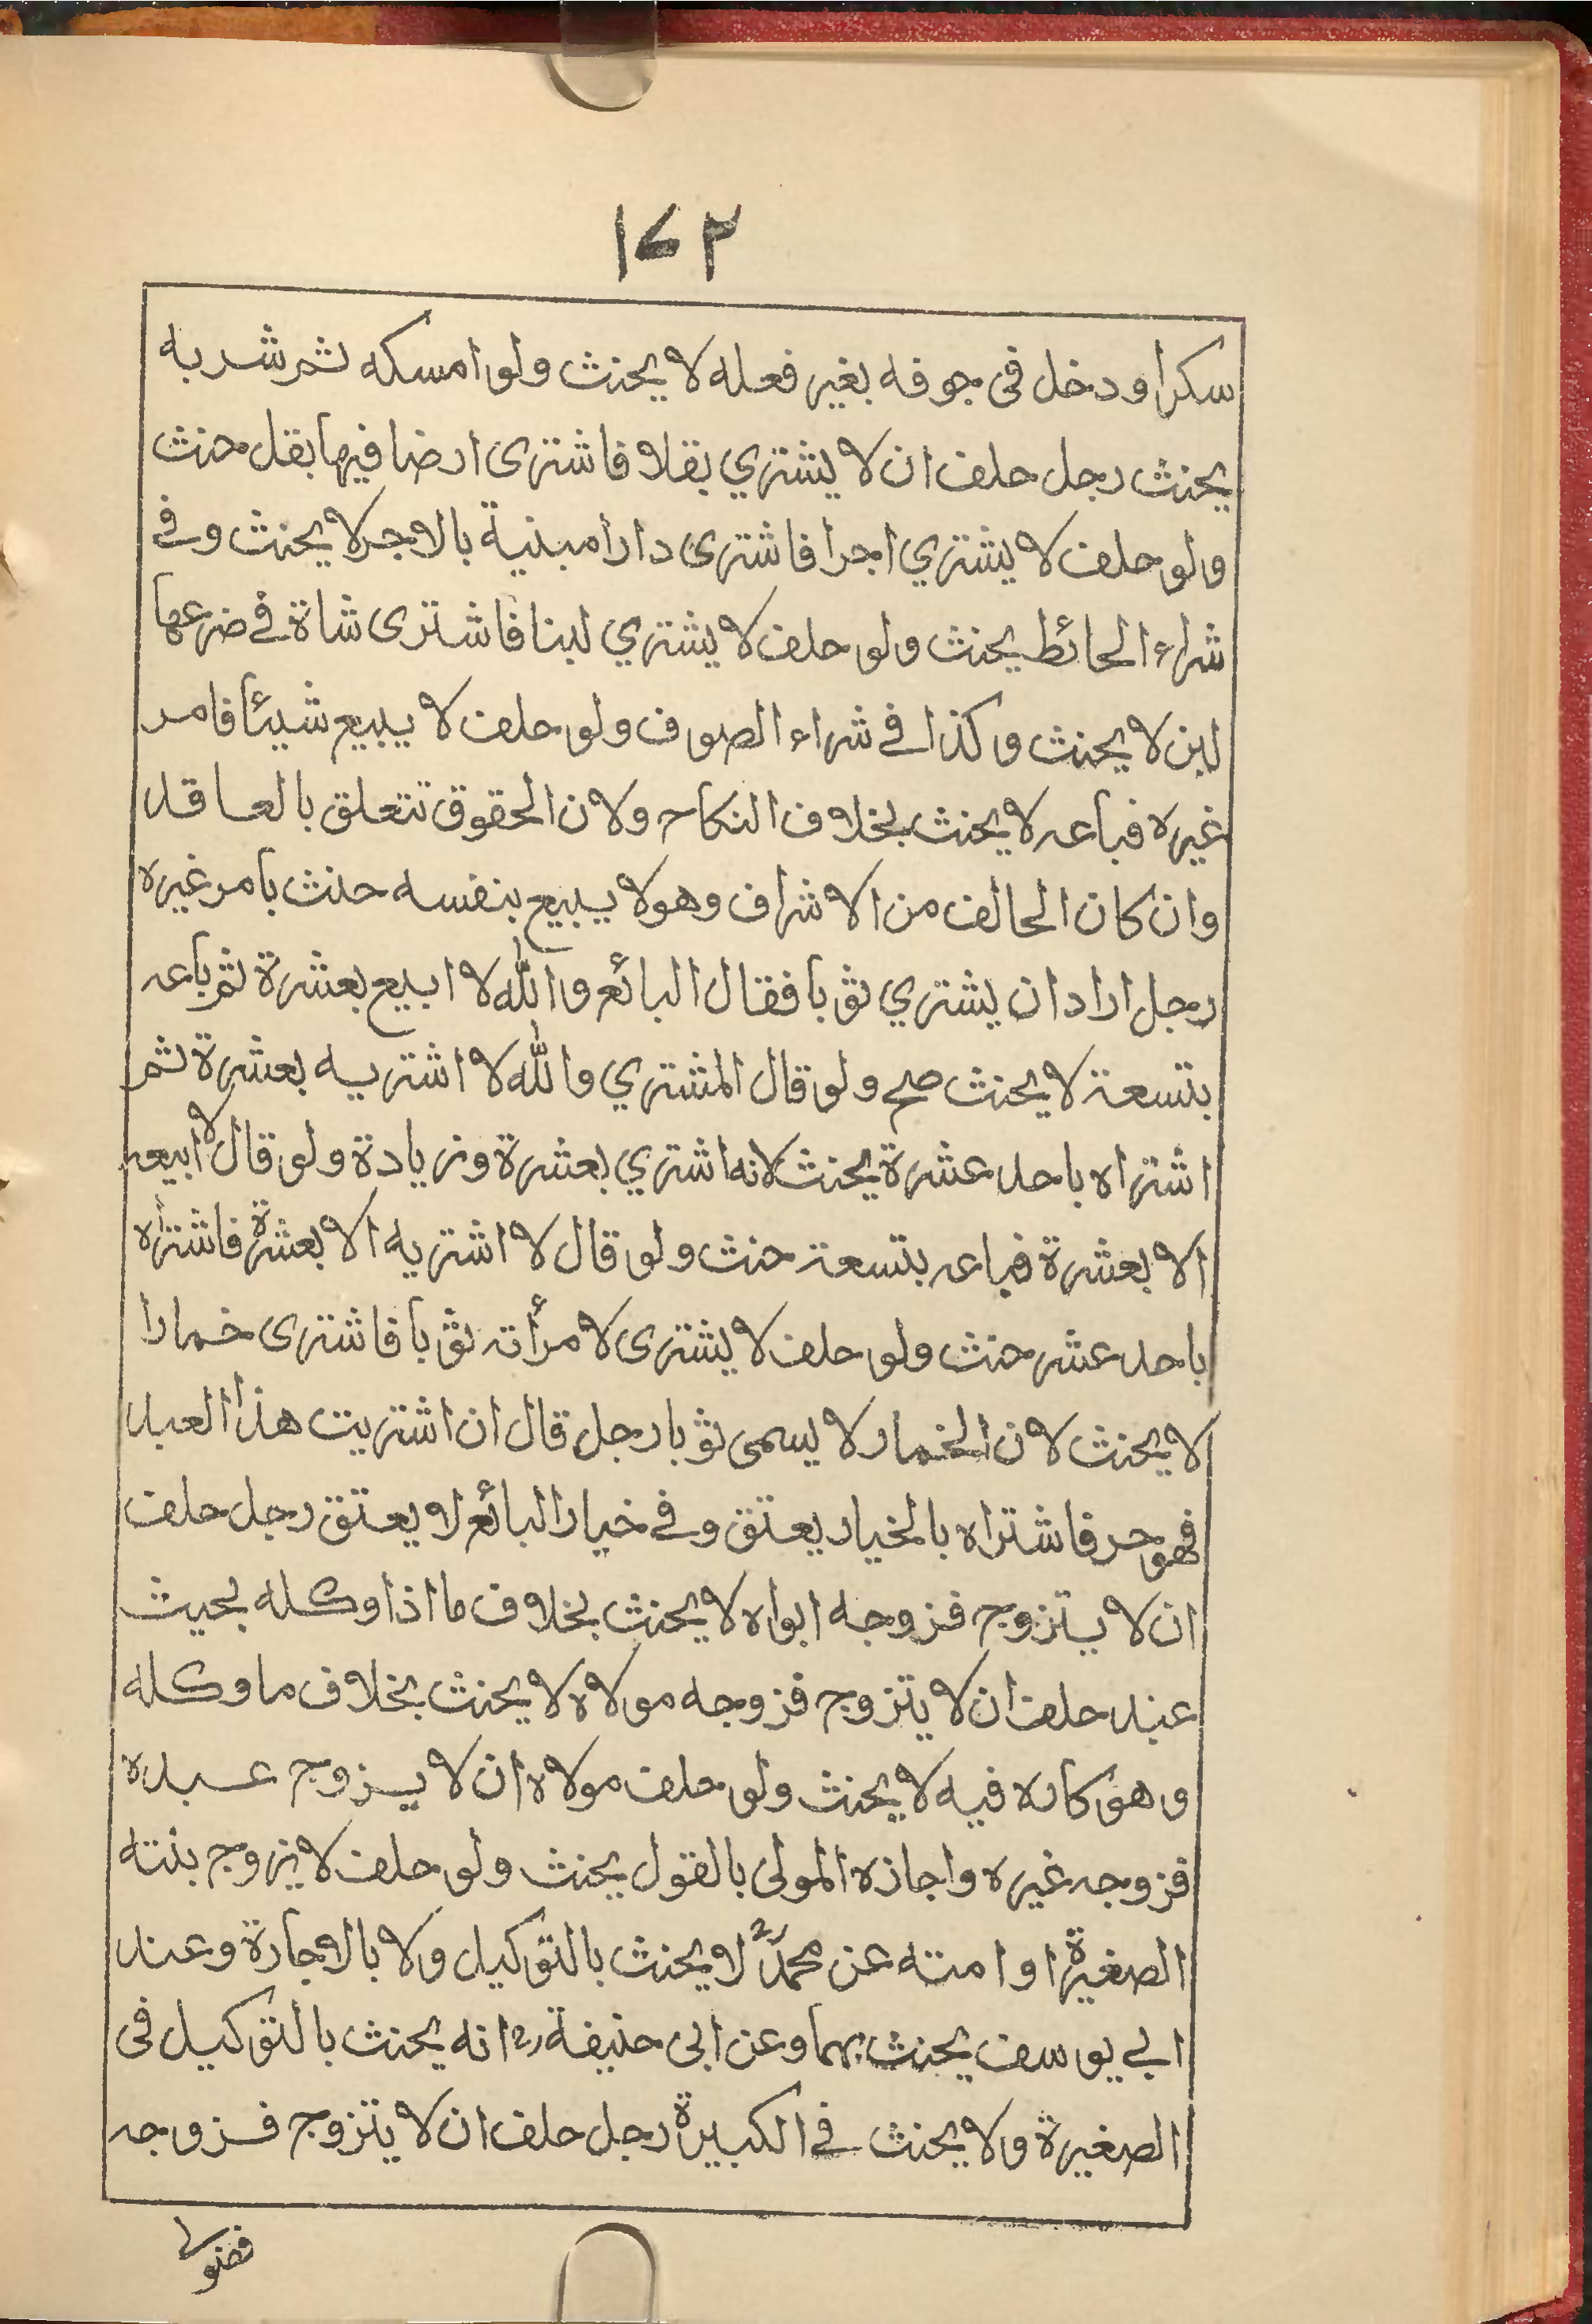 ١٧٢
سكرا ودخل فى جوفه بغير فعله لا يحنث ولو امسكه ثم شربه
يحنث رجل حلف ان لا يشتري بقلا فاشترى ارضا فيها بقل حنث
ولو حلف لا يشتري اجرا فاشترى دارا مبنية بالاجر لا يحنث وفى
شراء الحائط يحنث ولو حلف لا يشتري لبنا فاشترى شاة فى ضرعها
لبن لا يحنث وكذا فى شراء الصوف ولو حلف لا يبيع شيئا فامر
غيره فباعه لا يحنث بخلاف النكاح ولان الحقوق تتعلق بالعاقد
وان كان الحالف من الاشراف وهو لا يبيع بنفسه حنث بامر غيره
رجل اراد ان يشتري ثوبا فقال البائع والله لا ابيع بعشرة ثم باعه
بتسعة لا يحنث صح ولو قال المشتري والله لا اشتريه بعشرة ثم
اشتراه باحد عشرة يحنث لانه اشتري بعشرة وزيادة ولو قال لا ابيعه
الا بعشرة فباعه بتسعة حنث ولو قال لا اشتريه الا بعشرة فاشتراه
باحد عشر حنث ولو حلف لا يشترى لامرأته ثوبا فاشترى خمارا
لا يحنث لان الخمار لا يسمى ثوبا رجل قال ان اشتريت هذا العبد
فهو حر فاشتراه بالخيار يعتق وفى خيار البائع لا يعتق رجل حلف
ان لا يتزوج فزوجه ابواه لا يحنث بخلاف ما اذا وكله بحيث
عبد حلف ان لا يتزوج فزوجه مولاه لا يحنث بخلاف ما وكله
وهو كاره فيه لا يحنث ولو حلف مولاه ان لا يزوج عبده
فزوجه غيره واجازه المولى بالقول يحنث ولو حلف لا يزوج بنته
الصغيرة او امته عن محمدؒ لا يحنث بالتوكيل ولا بالاجارة وعند
ابي يوسف يحنث بهما وعن ابى حنيفة رح انه يحنث بالتوكيل فى
الصغيرة ولا يحنث فى الكبيرة رجل حلف ان لا يتزوج فزوجه
فضولى